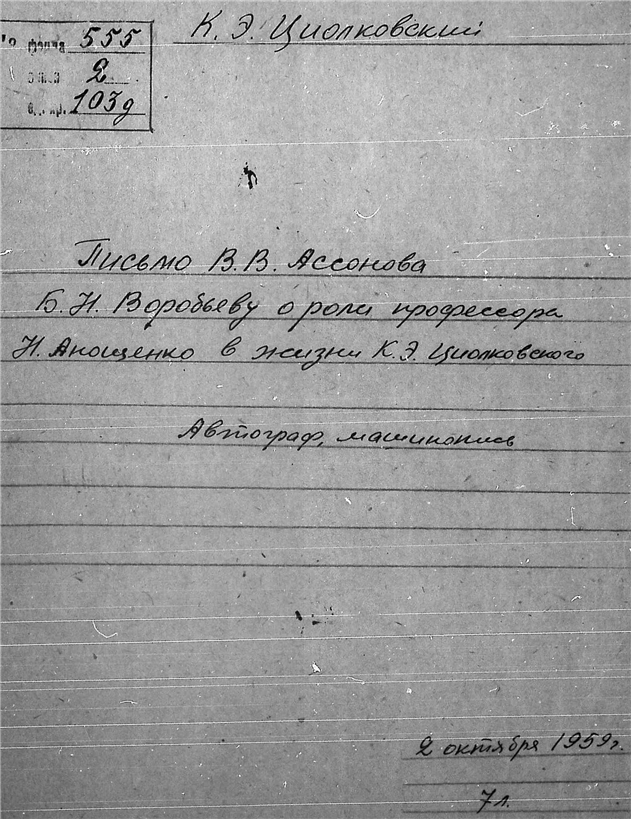 К. Э. Циолковский
№ фонда 555
опись 2
ед. хр. 103д
Письмо В. В. Ассонова
Б. Н. Воробьеву о роли профессора
Н. Анощенко в жизни К. Э. Циолковского
Автограф, машинопись
2 октября 1959г.
7 л.